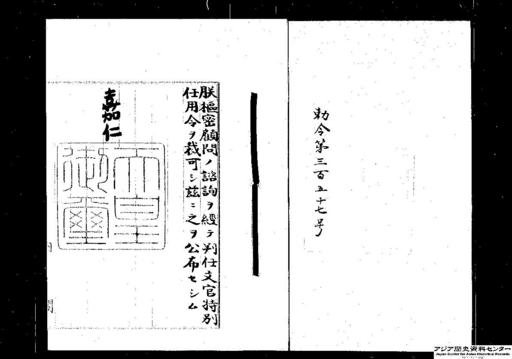 勅令第三百五十七号
朕枢密顧問ノ諮詢ヲ経テ判任文官特別
任用令ヲ裁可シ茲ニ之ヲ公布セシム
嘉仁
天皇
御璽
アジア歴史資料センター
Japan Center for Asian Historical Records